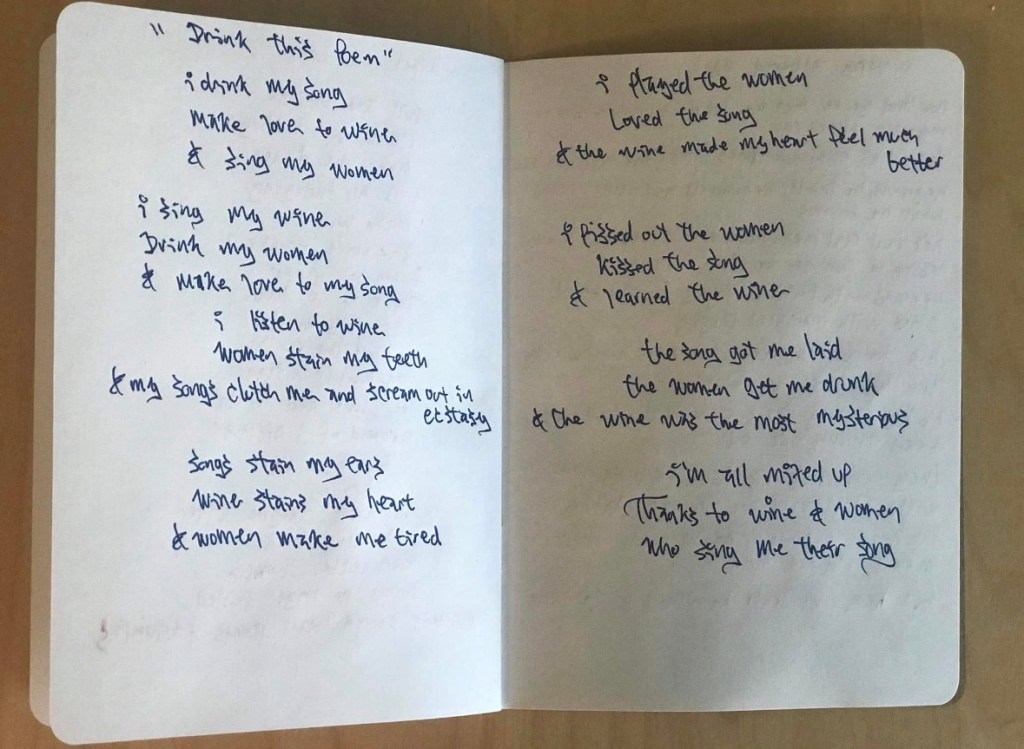 "Drink this Poem"
i drink my song
make love to wine
& sing my women
i sing my wine
Drink my women
& make love to my song
i listen to wine
women stain my teeth
& my songs clutch me and scream out in
ecstasy
songs stain my ears
wine stains my heart
& women make me tired
i played the women
Loved the song
& the wine made my heart feel much
better
i pissed out the women
kissed the song
& learned the wine
the song got me laid
the women get me drunk
& the wine was the most mysterious
i'm all mixed up
Thanks to wine & women
who sing me their song